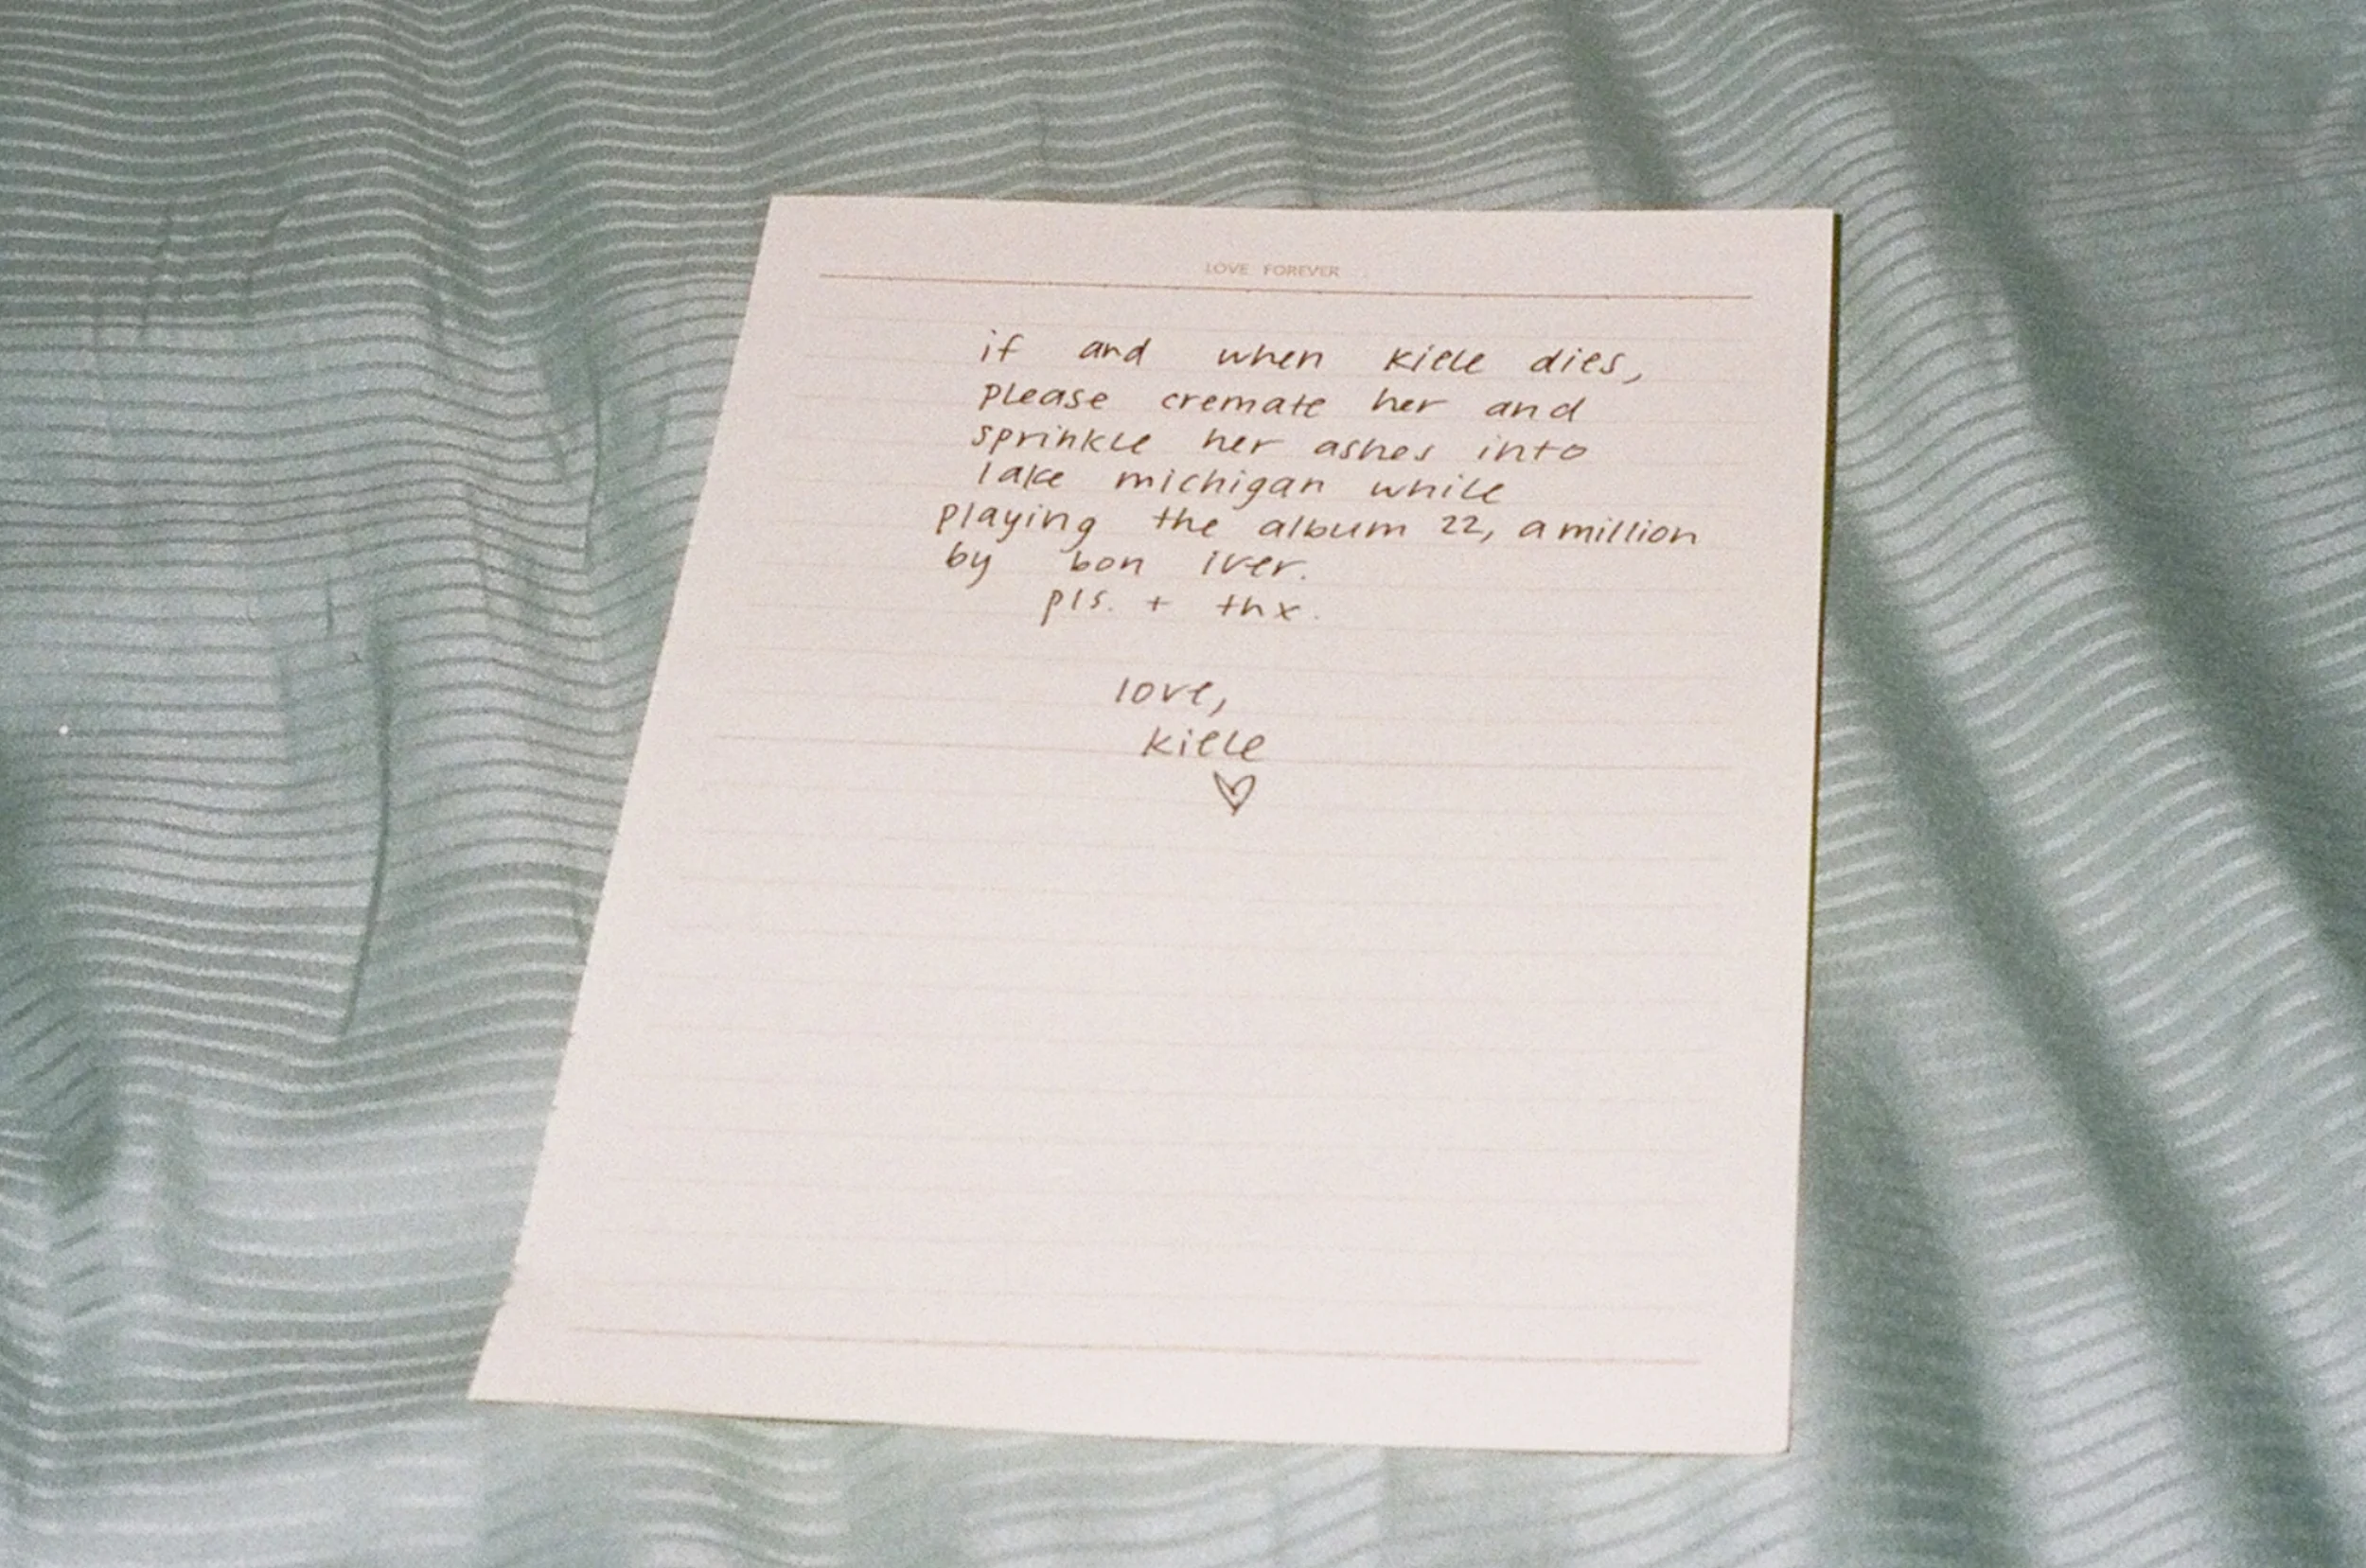 LOVE FOREVER
if and when kiele dies,
please cremate her and
sprinkle her ashes into
lake michigan while
playing the album 22, a million
by bon iver.
pls. + thx.
love,
kiele